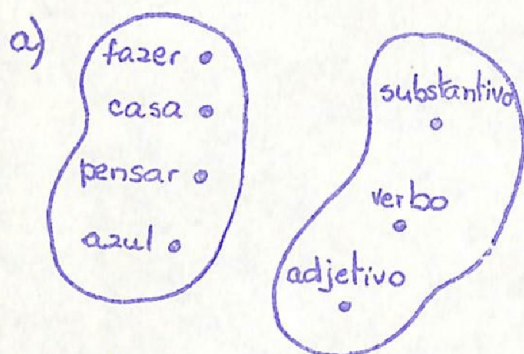 a)
fazer
casa
pensar
azul
substantivo
verbo
adjetivo